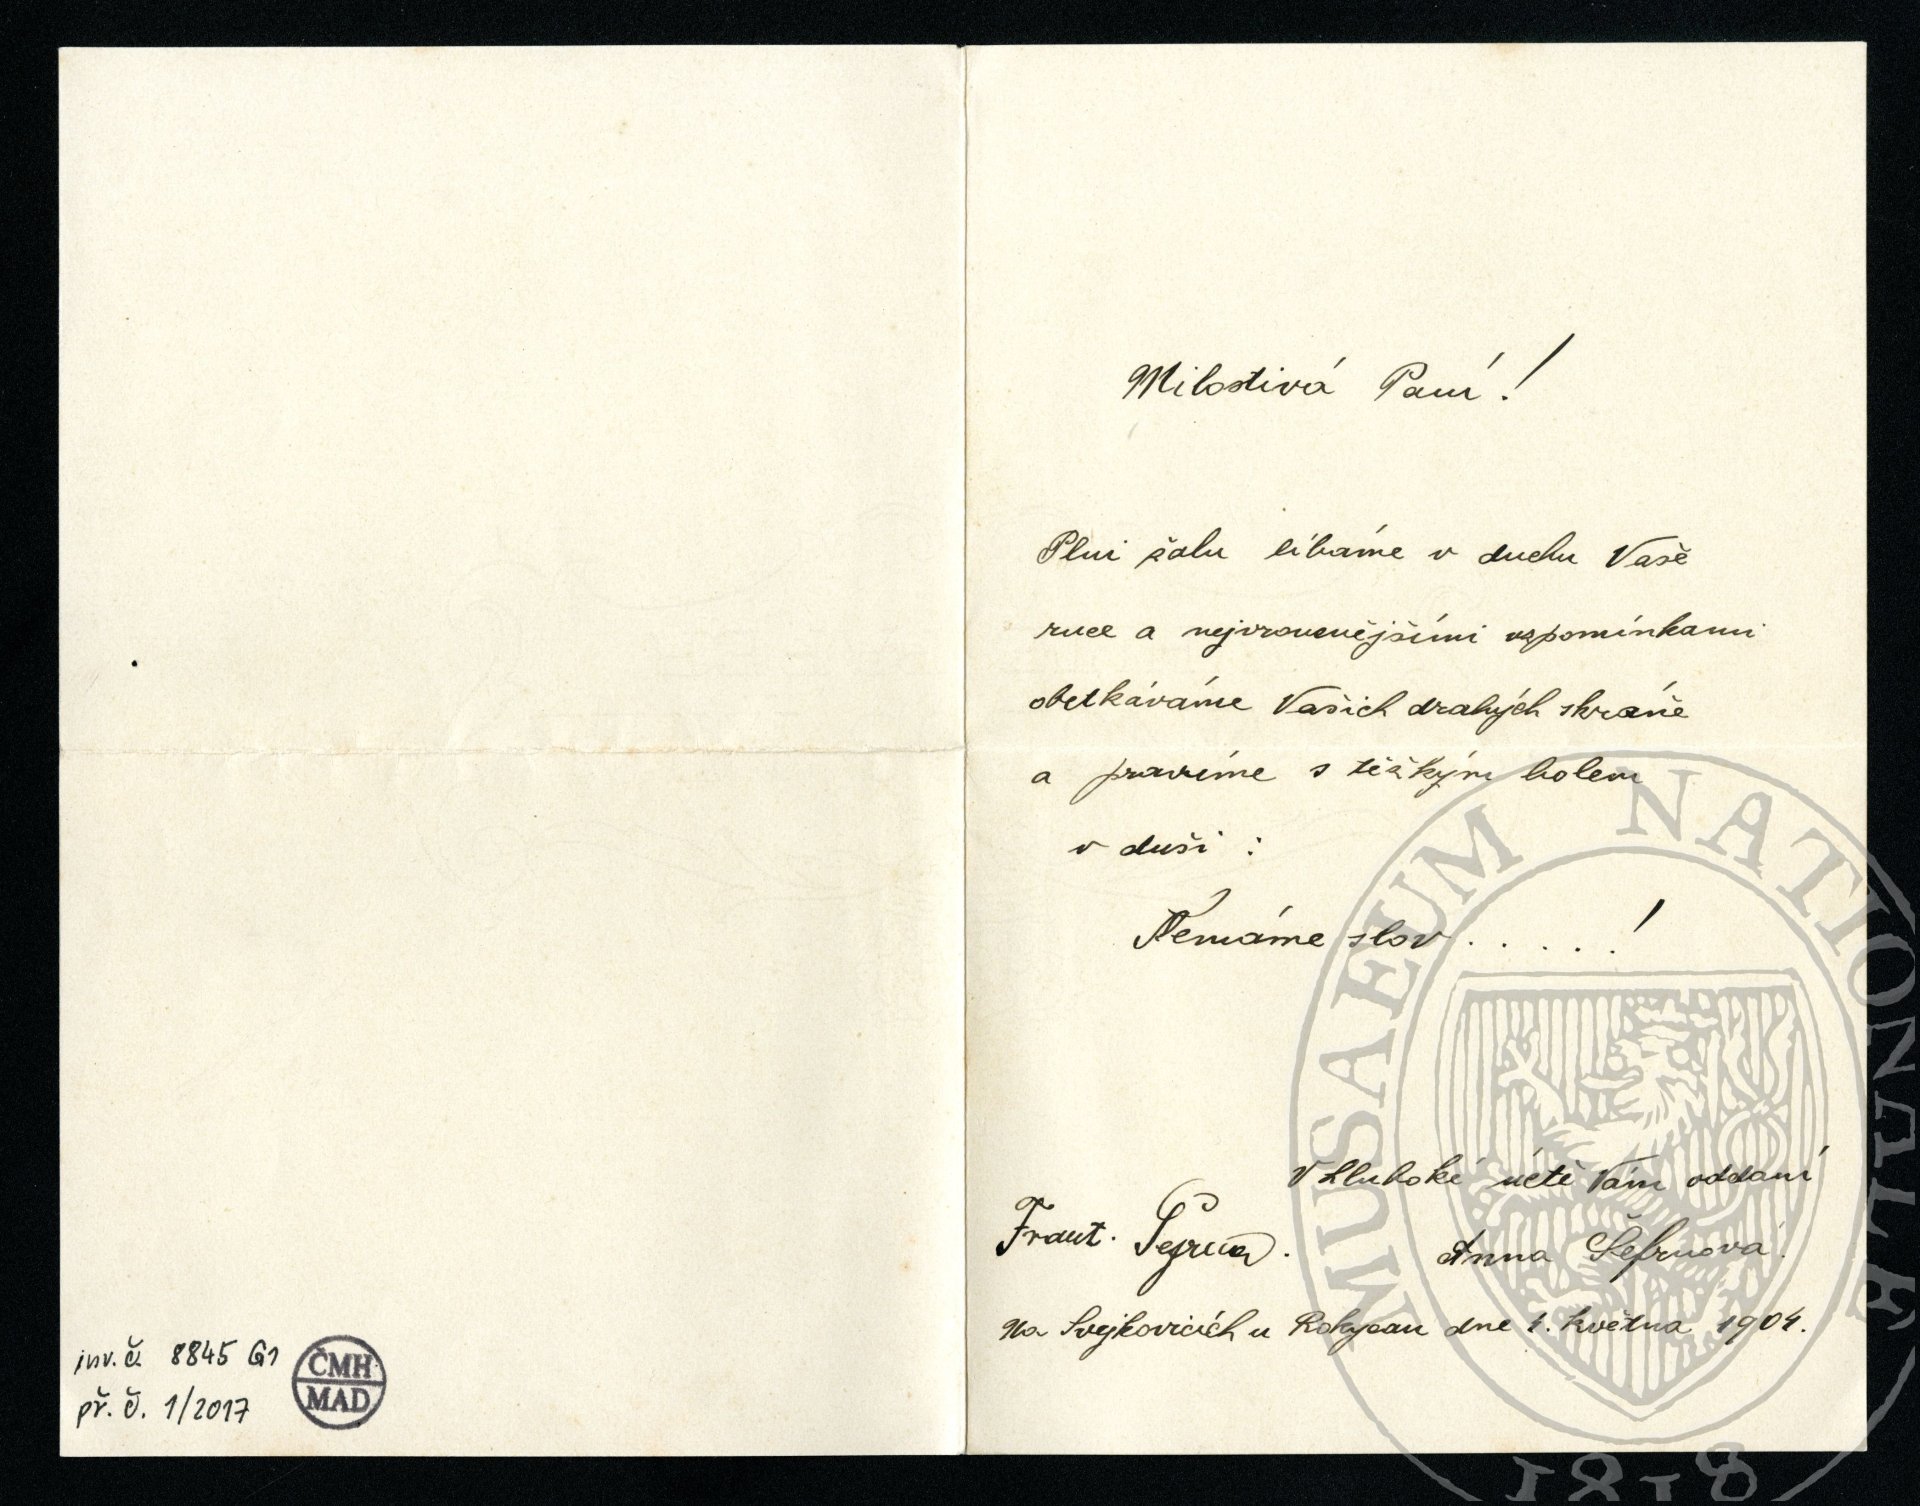 inv. č. 8845 G1
př. č. 1/2017
ČMH
MAD
Milostivá Paní!
Plni žalu líbáme v duchu Vaše
ruce a nejvroucnějšími vzpomínkami
obetkáváme Vašich drahých skráně
a pravíme s těžkým bolem
v duši:
Nemáme slov.....!
V hluboké úctě Vám oddaní
Frant.
Anna
Na Svejkovicích u Rokycan dne 4. května 1904.
MUSAEUM NATIONALE
1818